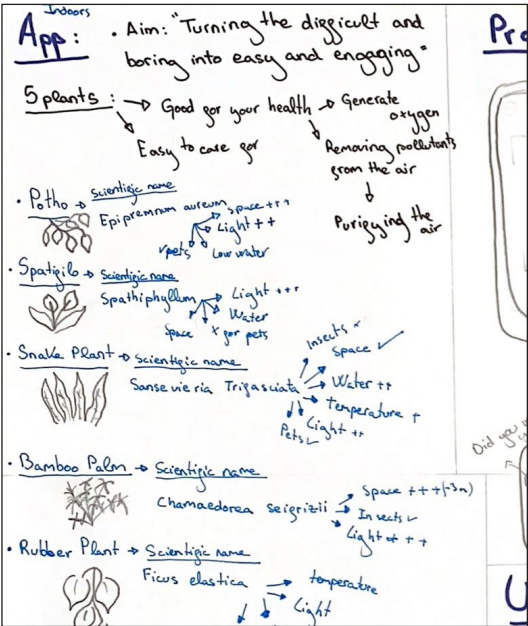 Indoors
App: • Aim: "Turning the difficult and
boring into easy and engaging"
5 plants: → Good for your health → Generate
oxygen
Easy to care for
Removing pollutants
from the air
Purifying the
air
• Potho → Scientific name
Epipremnum aureum
Space +++
Light ++
Low water
✓pets
• Spatifilo → Scientific name
Spathiphyllum
Light +++
Water
X for pets
Space
• Snake Plant → Scientific name
Sansevieria Trifasciata
Insects ×
Space ✓
Water ++
Temperature +
Light ++
Pets ✓
• Bamboo Palm → Scientific name
Chamaedorea seifrizii
Space +++(-3m)
Insects ✓
Light +++
• Rubber Plant → Scientific name
Ficus elastica
temperature
Light
Did you